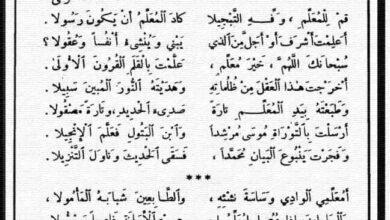 قم للمُعلّمِ ، وَفِّهِ التَّبْجيلا كادَ المُعلّمُ أنْ يَكُونَ رَسُولا .
أعَلِمْتَ أشْرَفَ أوْ أجلَّ مِنَ الَّذي يَبْني وَيُنْشِىءُ أنْفُساً وَعُقُولا ؟
سُبْحَانَكَ اللهُمَّ ، خَيْرَ مُعلِّمٍ عَلَّمْتَ بالْقَلمِ القُرُونَ الأُولَى .
أخْرَجْتَ هذا العَقْلَ مِنْ ظُلُمَاتِهِ وَهَدَيْتَهُ النُّورَ المُبينَ سَبيلا
وَطَبَعْتَهُ بِيدِ المُعلّمِ تارةً صَدِىءَ الحَديدِ ، وَتارةً مَصْقُولا .
أرْسَلْتَ بالتَّوْرَاةِ مُوسَى مُرْشِداً وابنَ البَتُولِ فَعلَّمَ الإنْجيلا .
وَفَجرْتَ يَنْبُوعَ البَيَانِ مُحمَّداً ، فَسَقَى الْحَديثَ وَنَاوَلَ التَّنْزيلا .
***
أمُعَلّمي الوادي وَسَاسَةَ نَشْئِهِ ، وَالطَّابعينَ شَبابَهُ المَأمُولا ،